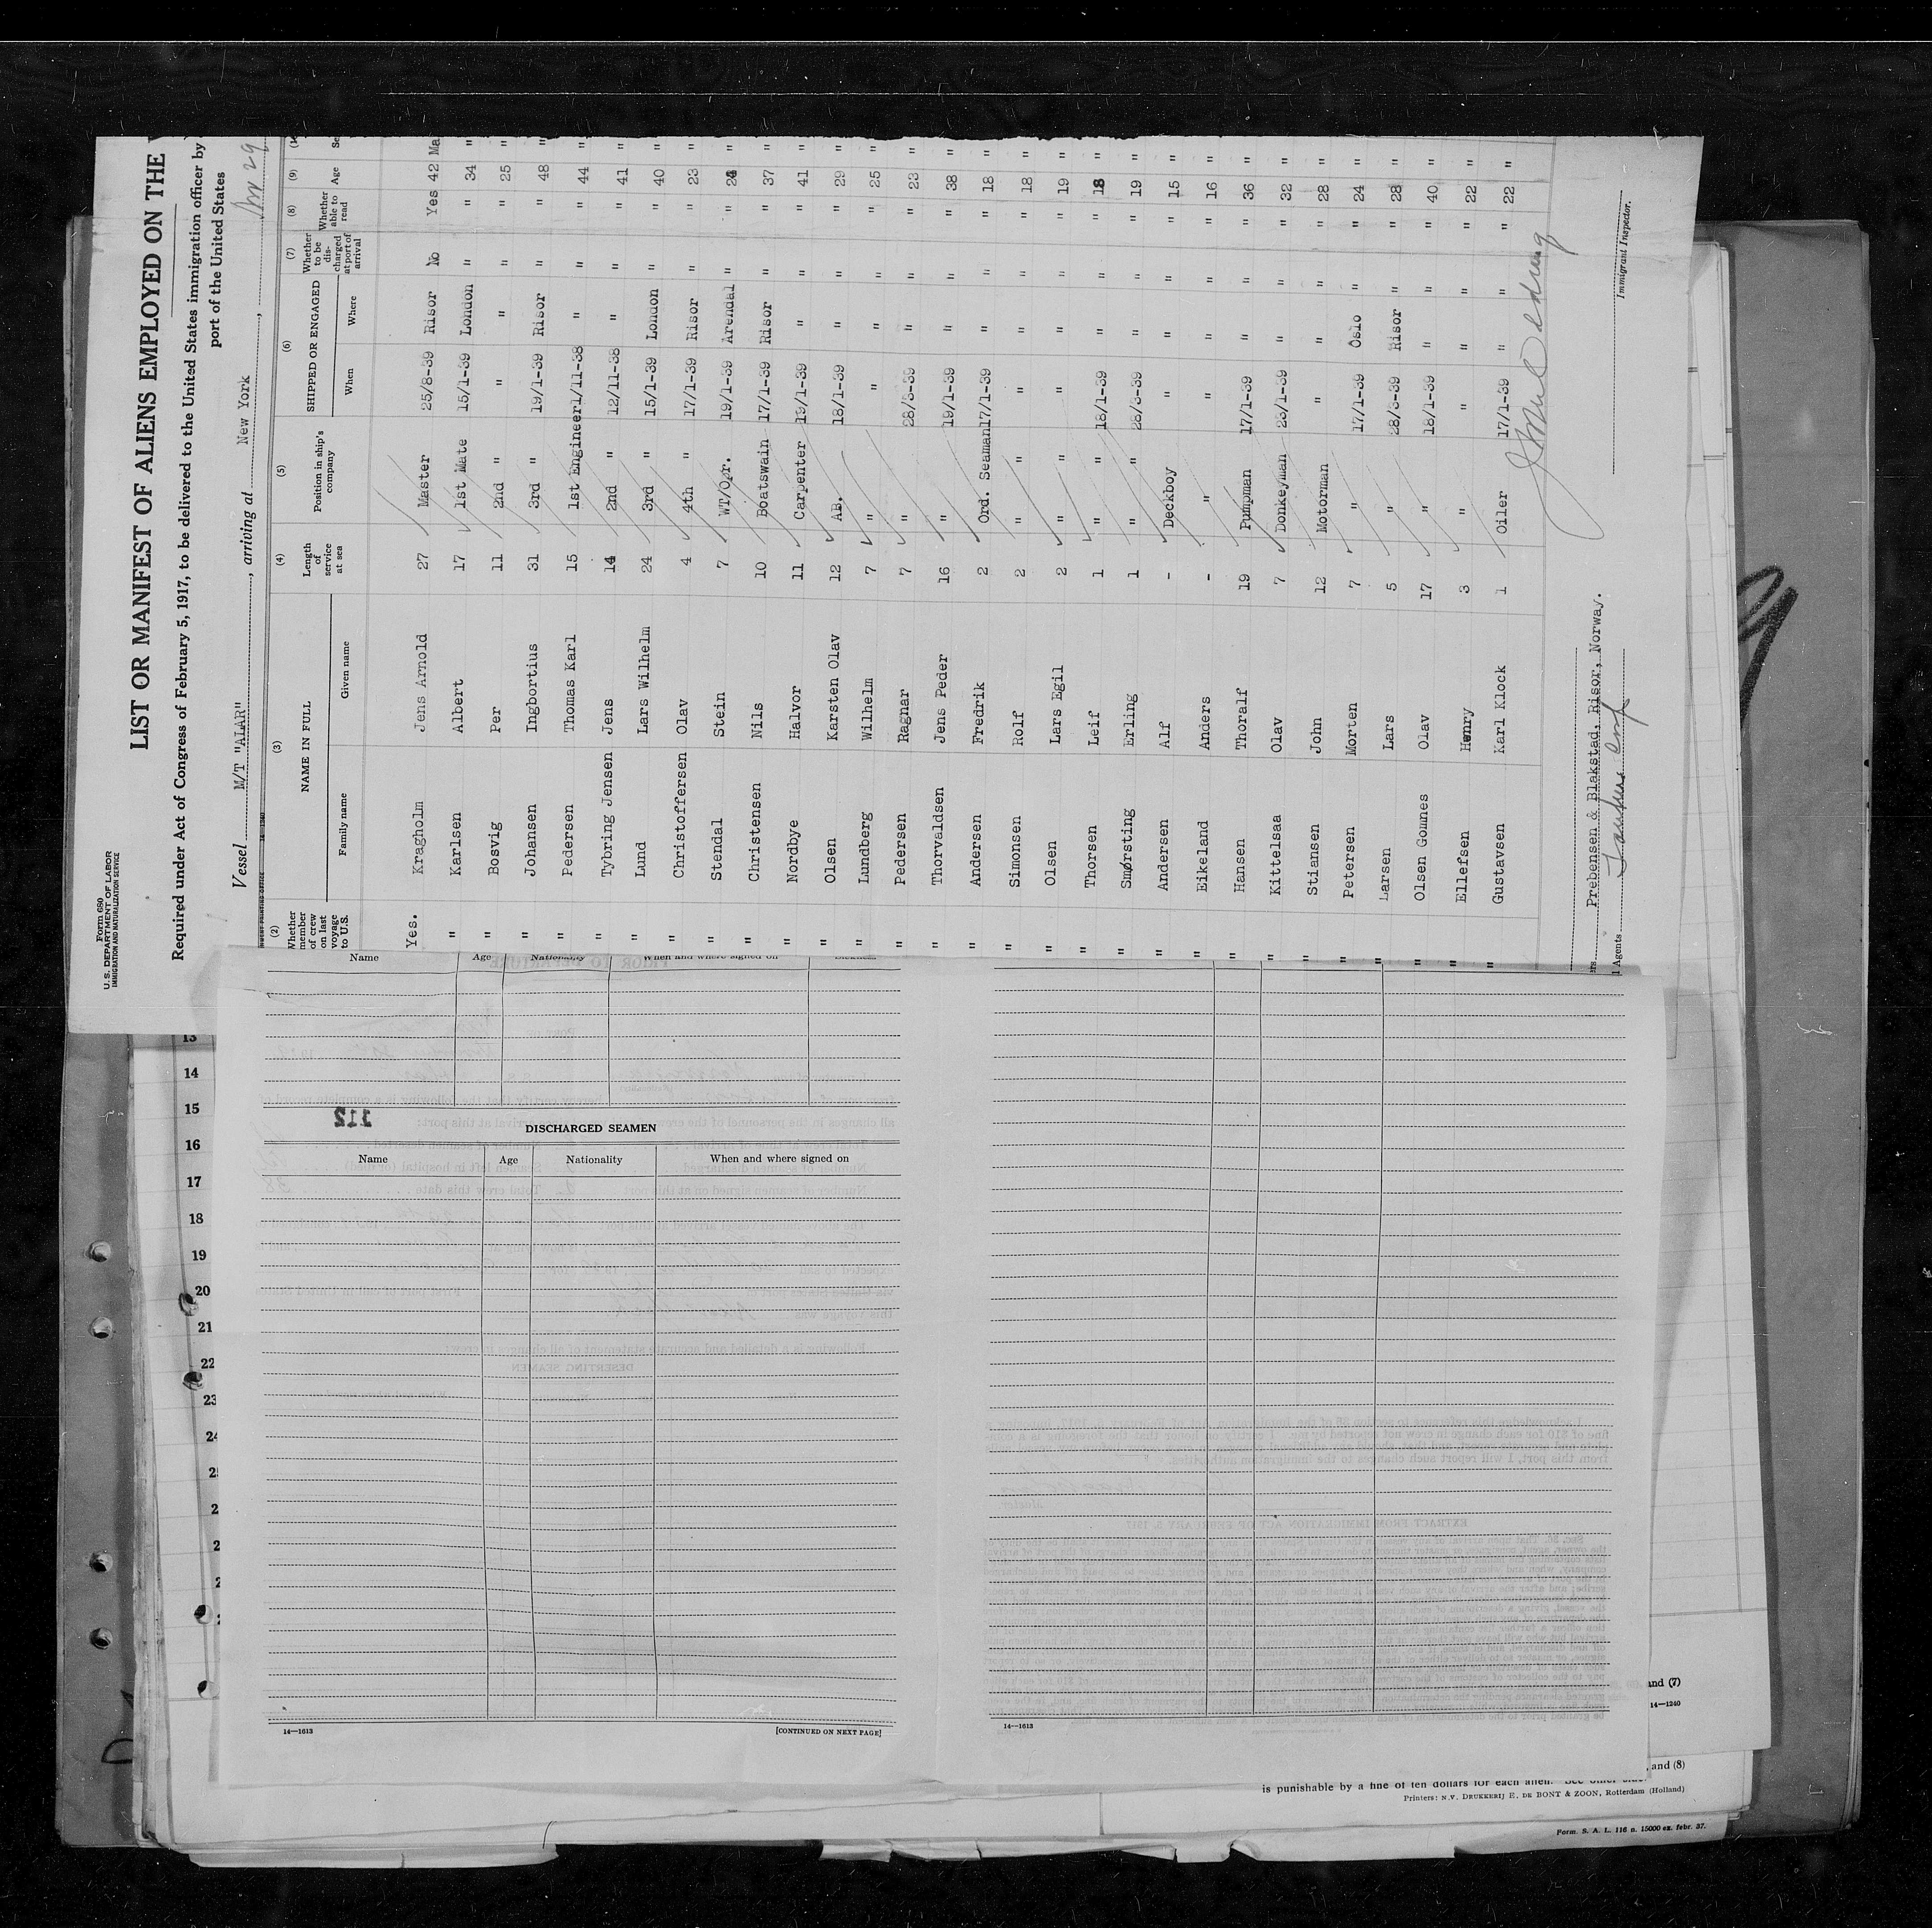 Form 680
U.S. DEPARTMENT OF LABOR
IMMIGRATION AND NATURALIZATION SERVICE
LIST OR MANIFEST OF ALIENS EMPLOYED ON THE
Required under Act of Congress of February 5, 1917, to be delivered to the United States immigration officer by
port of the United States
Vessel M/T "ALAR", arriving at New York, 29
(2) (3) (4) (5) (6) (7) (8) (9)
Whether member of crew on last voyage to U.S. NAME IN FULL Family name Given name Length of service at sea Position in ship's company SHIPPED OR ENGAGED When Where Whether to be discharged at port of arrival Whether able to read Age
Yes. Kragholm Jens Arnold 27 Master 25/8-39 Risor No Yes 42 Ma
" Karlsen Albert 17 1st Mate 15/1-39 London " " 34 "
" Bosvig Per 11 2nd " " " " " 25 "
" Johansen Ingbortius 31 3rd " 19/1-39 Risor " " 48 "
" Pedersen Thomas Karl 15 1st Engineer 1/11-38 " " " 44 "
" Tybring Jensen Jens 14 2nd " 12/11-38 " " " 41 "
" Lund Lars Wilhelm 24 3rd " 15/1-39 London " " 40 "
" Christoffersen Olav 4 4th " 17/1-39 Risor " " 23 "
" Stendal Stein 7 WT/Opr. 19/1-39 Arendal " " "
" Christensen Nils 10 Boatswain 17/1-39 Risor " " 37 "
" Nordbye Halvor 11 Carpenter 19/1-39 " " " 41 "
" Olsen Karsten Olav 12 AB. 18/1-39 " " " 29 "
" Lundberg Wilhelm 7 " " " " " 25 "
" Pedersen Ragnar 7 " 28/3-39 " " " 23 "
" Thorvaldsen Jens Peder 16 " 19/1-39 " " " 38 "
" Andersen Fredrik 2 Ord. Seaman 17/1-39 " " " 18 "
" Simonsen Rolf 2 " " " " " 18 "
" Olsen Lars Egil 2 " " " " " 19 "
" Thorsen Leif 1 " " 18/1-39 " " " 18 "
" Smørsting Erling 1 " " 28/3-39 " " " 19 "
" Andersen Alf - Deckboy " " " " 15 "
" Eikeland Anders - " " " " " 16 "
" Hansen Thoralf 19 Pumpman 17/1-39 " " " 36 "
" Kittelsaa Olav 7 Donkeyman 23/1-39 " " " 32 "
" Stiansen John 12 Motorman " " " " 28 "
" Petersen Morten 7 " 17/1-39 Oslo " " 24 "
" Larsen Lars 5 " 28/3-39 Risor " " 28 "
" Olsen Gomnes Olav 17 " 18/1-39 " " " 40 "
" Ellefsen Henry 3 " " " " " 22 "
" Gustavsen Karl Klock 1 Oiler 17/1-39 " " " 22 "
Prebensen & Blakstad, Risor, Norway.
Agents
Immigrant Inspector.
Name Age Nationality When and where signed on
112
DISCHARGED SEAMEN
Name Age Nationality When and where signed on
14—1613 [CONTINUED ON NEXT PAGE]
14—1613
13
14
15
16
17
18
19
20
21
22
23
24
and (7)
14—1240
and (8)
is punishable by a fine of ten dollars for each alien.
Printers: N.V. DRUKKERIJ F. DE BONT & ZOON, Rotterdam (Holland)
Form. S. A. L. 116 n. 15000 ex. febr. 37.